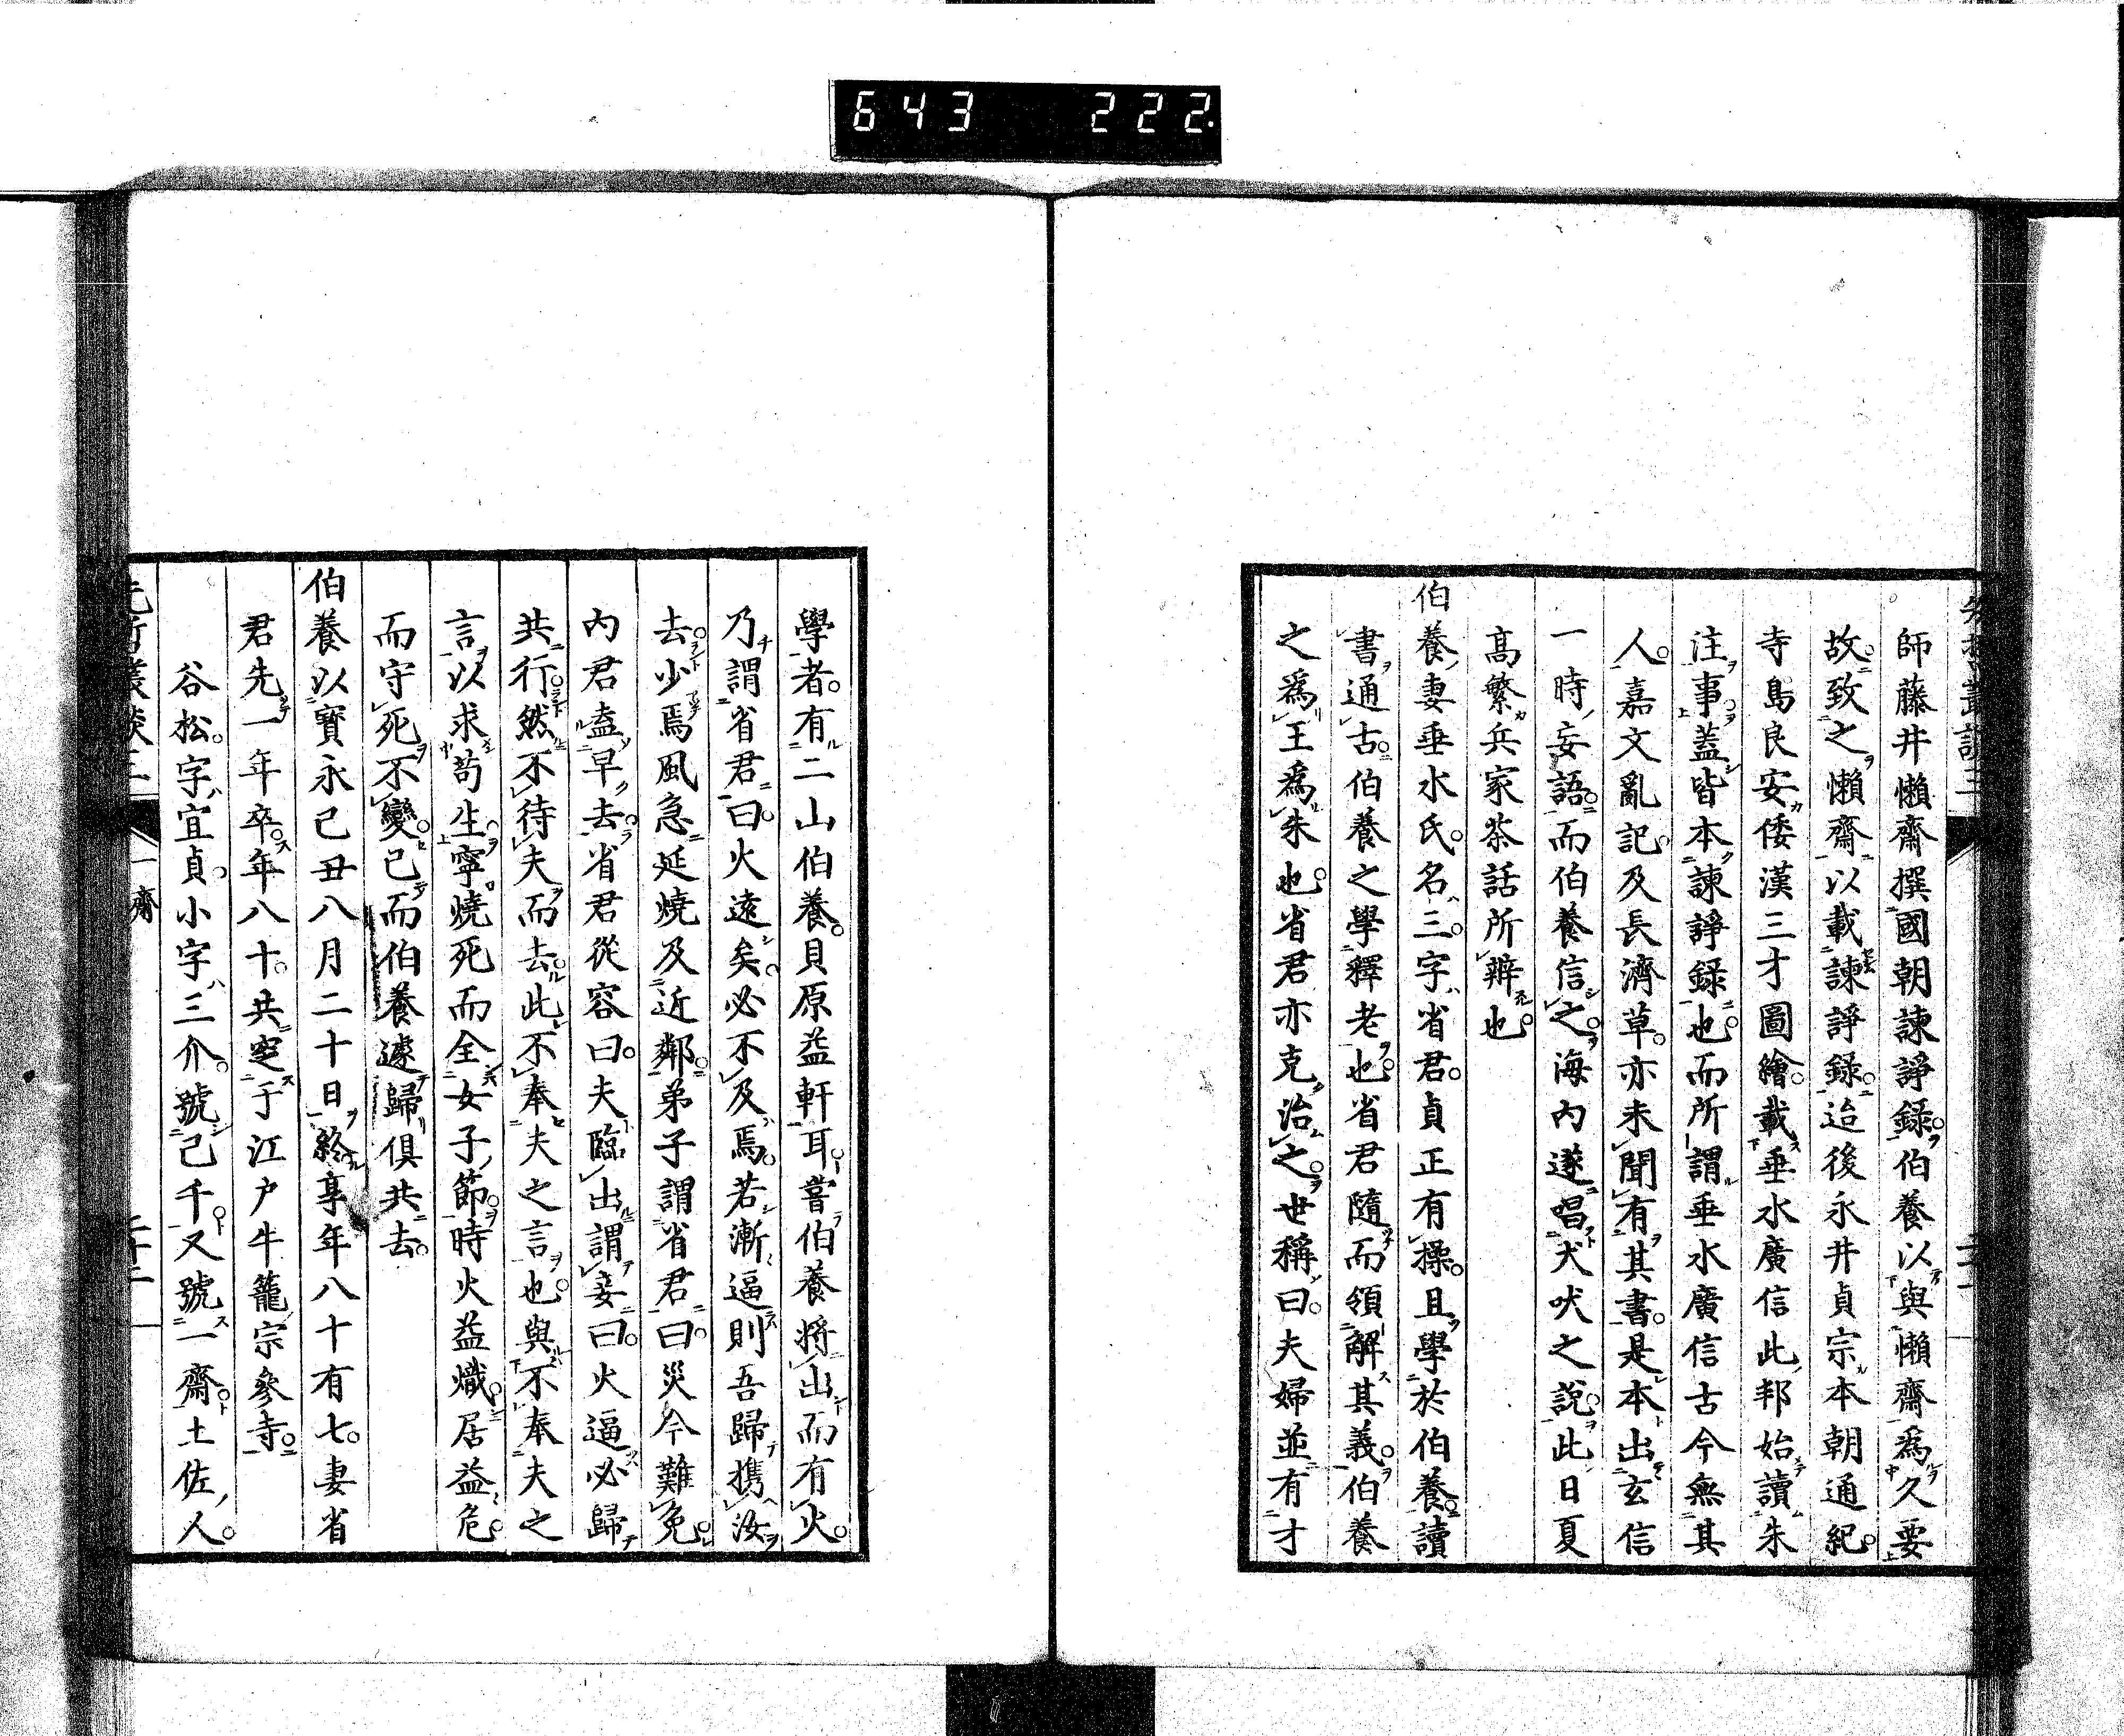 643 222
師藤井懶齋撰國朝諫諍録伯養以與懶齋爲久要
故致之懶齋以載諫諍録迨後永井貞宗本朝通紀
寺島良安倭漢三才圖繪載垂水廣信此邦始讀朱
注事蓋皆本諫諍録也而所謂垂水廣信古今無其
人嘉文亂記及長濟草亦未聞有其書是本出玄信
一時妄語而伯養信之海內遂唱犬吠之說此日夏
高繁兵家茶話所辨也
伯養妻垂水氏名三字省君貞正有操且學於伯養讀
書通古伯養之學釋老也省君隨而領解其義伯養
之爲王爲朱也省君亦克治之世稱曰夫婦並有才
學者有二山伯養貝原益軒耳嘗伯養將出而有火
乃謂省君曰火遠矣必不及焉若漸逼則吾歸携汝
去少焉風急延燒及近鄰弟子謂省君曰災今難免
內君盍早去省君從容曰夫臨出謂妾曰火逼必歸
共行然不待夫而去此不奉夫之言也與不奉夫之
言以求苟生寧燒死而全女子節時火益熾居益危
而守死不變已而伯養遽歸俱共去
伯養以寶永己丑八月二十日終享年八十有七妻省
君先一年卒年八十共窆于江戶牛籠宗參寺
谷松字宜貞小字三介號己千又號一齋土佐人
一齋